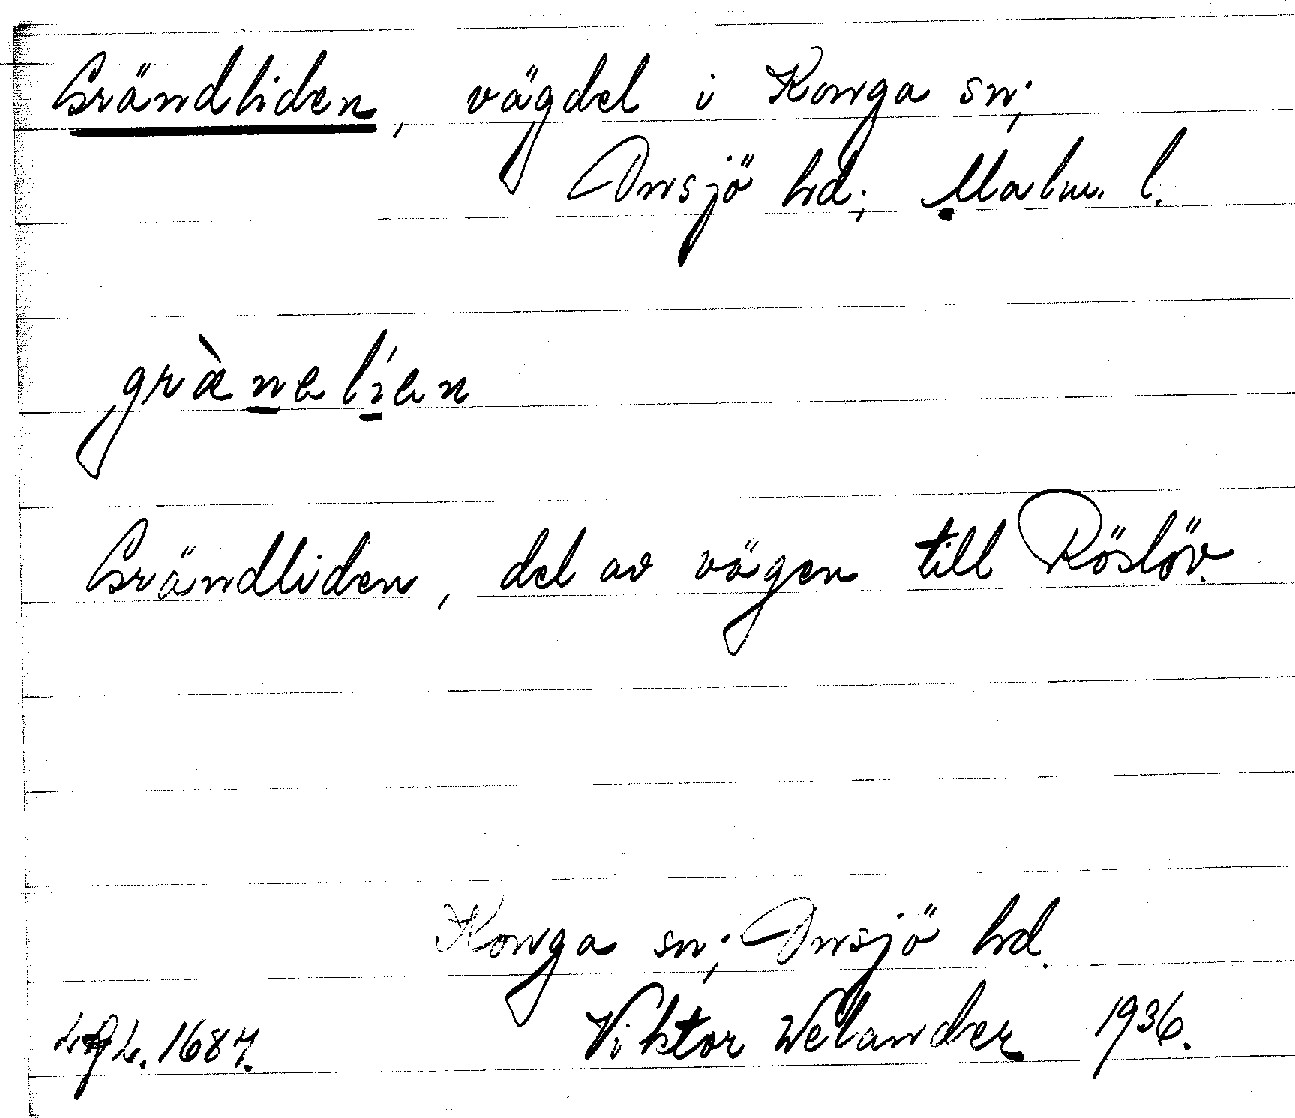 Grändliden, vägdel i Konga sn;
Onsjö hd; Malm. l.
grànelíen
Grändliden, del av vägen till Röslöv.
Konga sn; Onsjö hd.
1687.
Viktor Welander 1936.